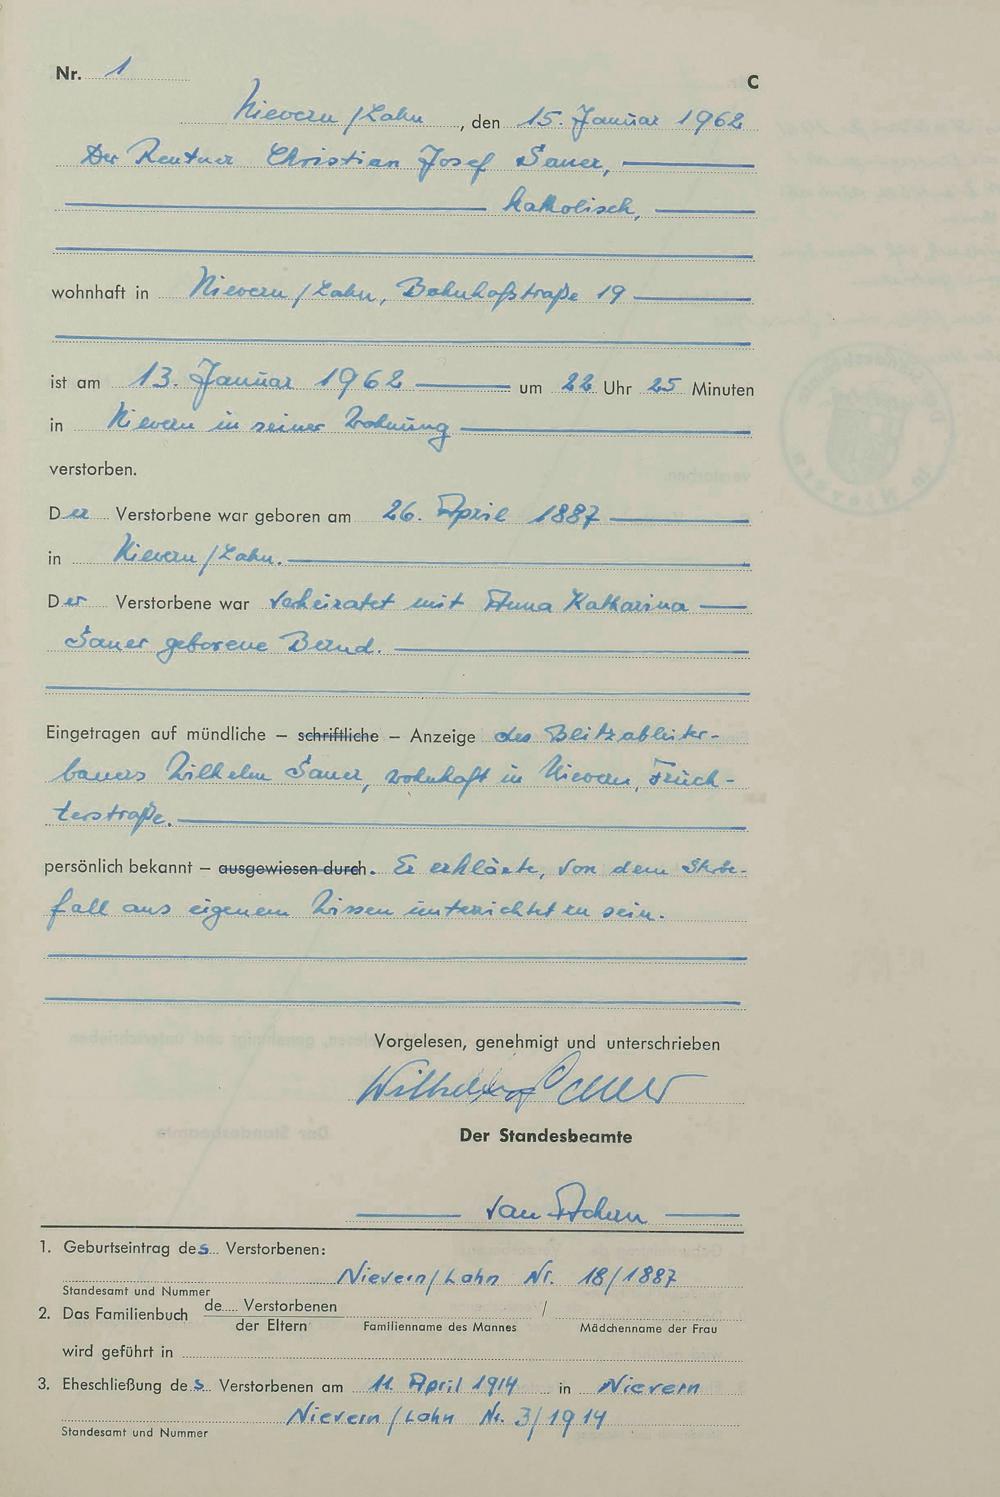 Nr. 1
C
Nievern/Lahn, den 15. Januar 1962
Der Rentner Christian Josef Sauer,
katholisch,
wohnhaft in Nievern/Lahn, Bahnhofstraße 19
ist am 13. Januar 1962 um 22 Uhr 25 Minuten
in Nievern in seiner Wohnung
verstorben.
Der Verstorbene war geboren am 26. April 1887
in Nievern/Lahn.
Der Verstorbene war verheiratet mit Anna Katharina
Sauer geborene Bernd.
Eingetragen auf mündliche – schriftliche – Anzeige des Blitzableiter-
bauers Wilhelm Sauer, wohnhaft in Nievern, Früch-
terstraße.
persönlich bekannt – ausgewiesen durch. Er erklärte, von dem Sterbe-
fall aus eigenem Wissen unterrichtet zu sein.
Vorgelesen, genehmigt und unterschrieben
Wilhelm Sauer
Der Standesbeamte
van
1. Geburtseintrag des Verstorbenen:
Nievern/Lahn Nr. 18/1887
Standesamt und Nummer
2. Das Familienbuch de.... Verstorbenen /
der Eltern Familienname des Mannes Mädchenname der Frau
wird geführt in
3. Eheschließung des Verstorbenen am 11. April 1914 in Nievern
Nievern/Lahn Nr. 3/1914
Standesamt und Nummer